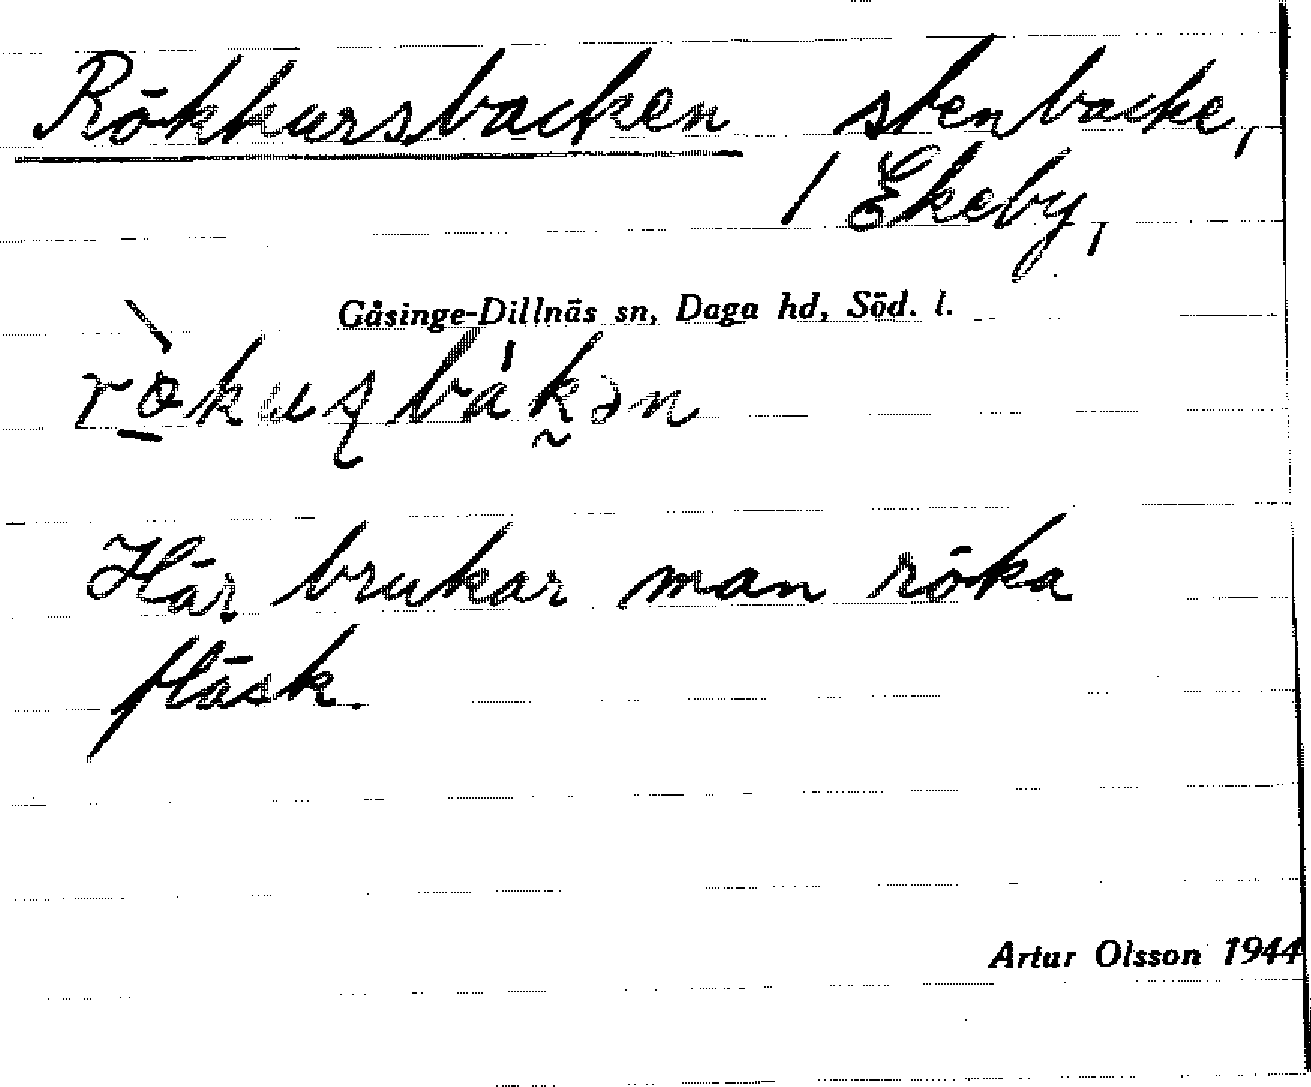 Rökkursbacken stenbacke,
/ Ekeby,
Gåsinge-Dillnäs sn, Daga hd, Söd. l.
Här brukar man röka
fläsk.
Artur Olsson 1944